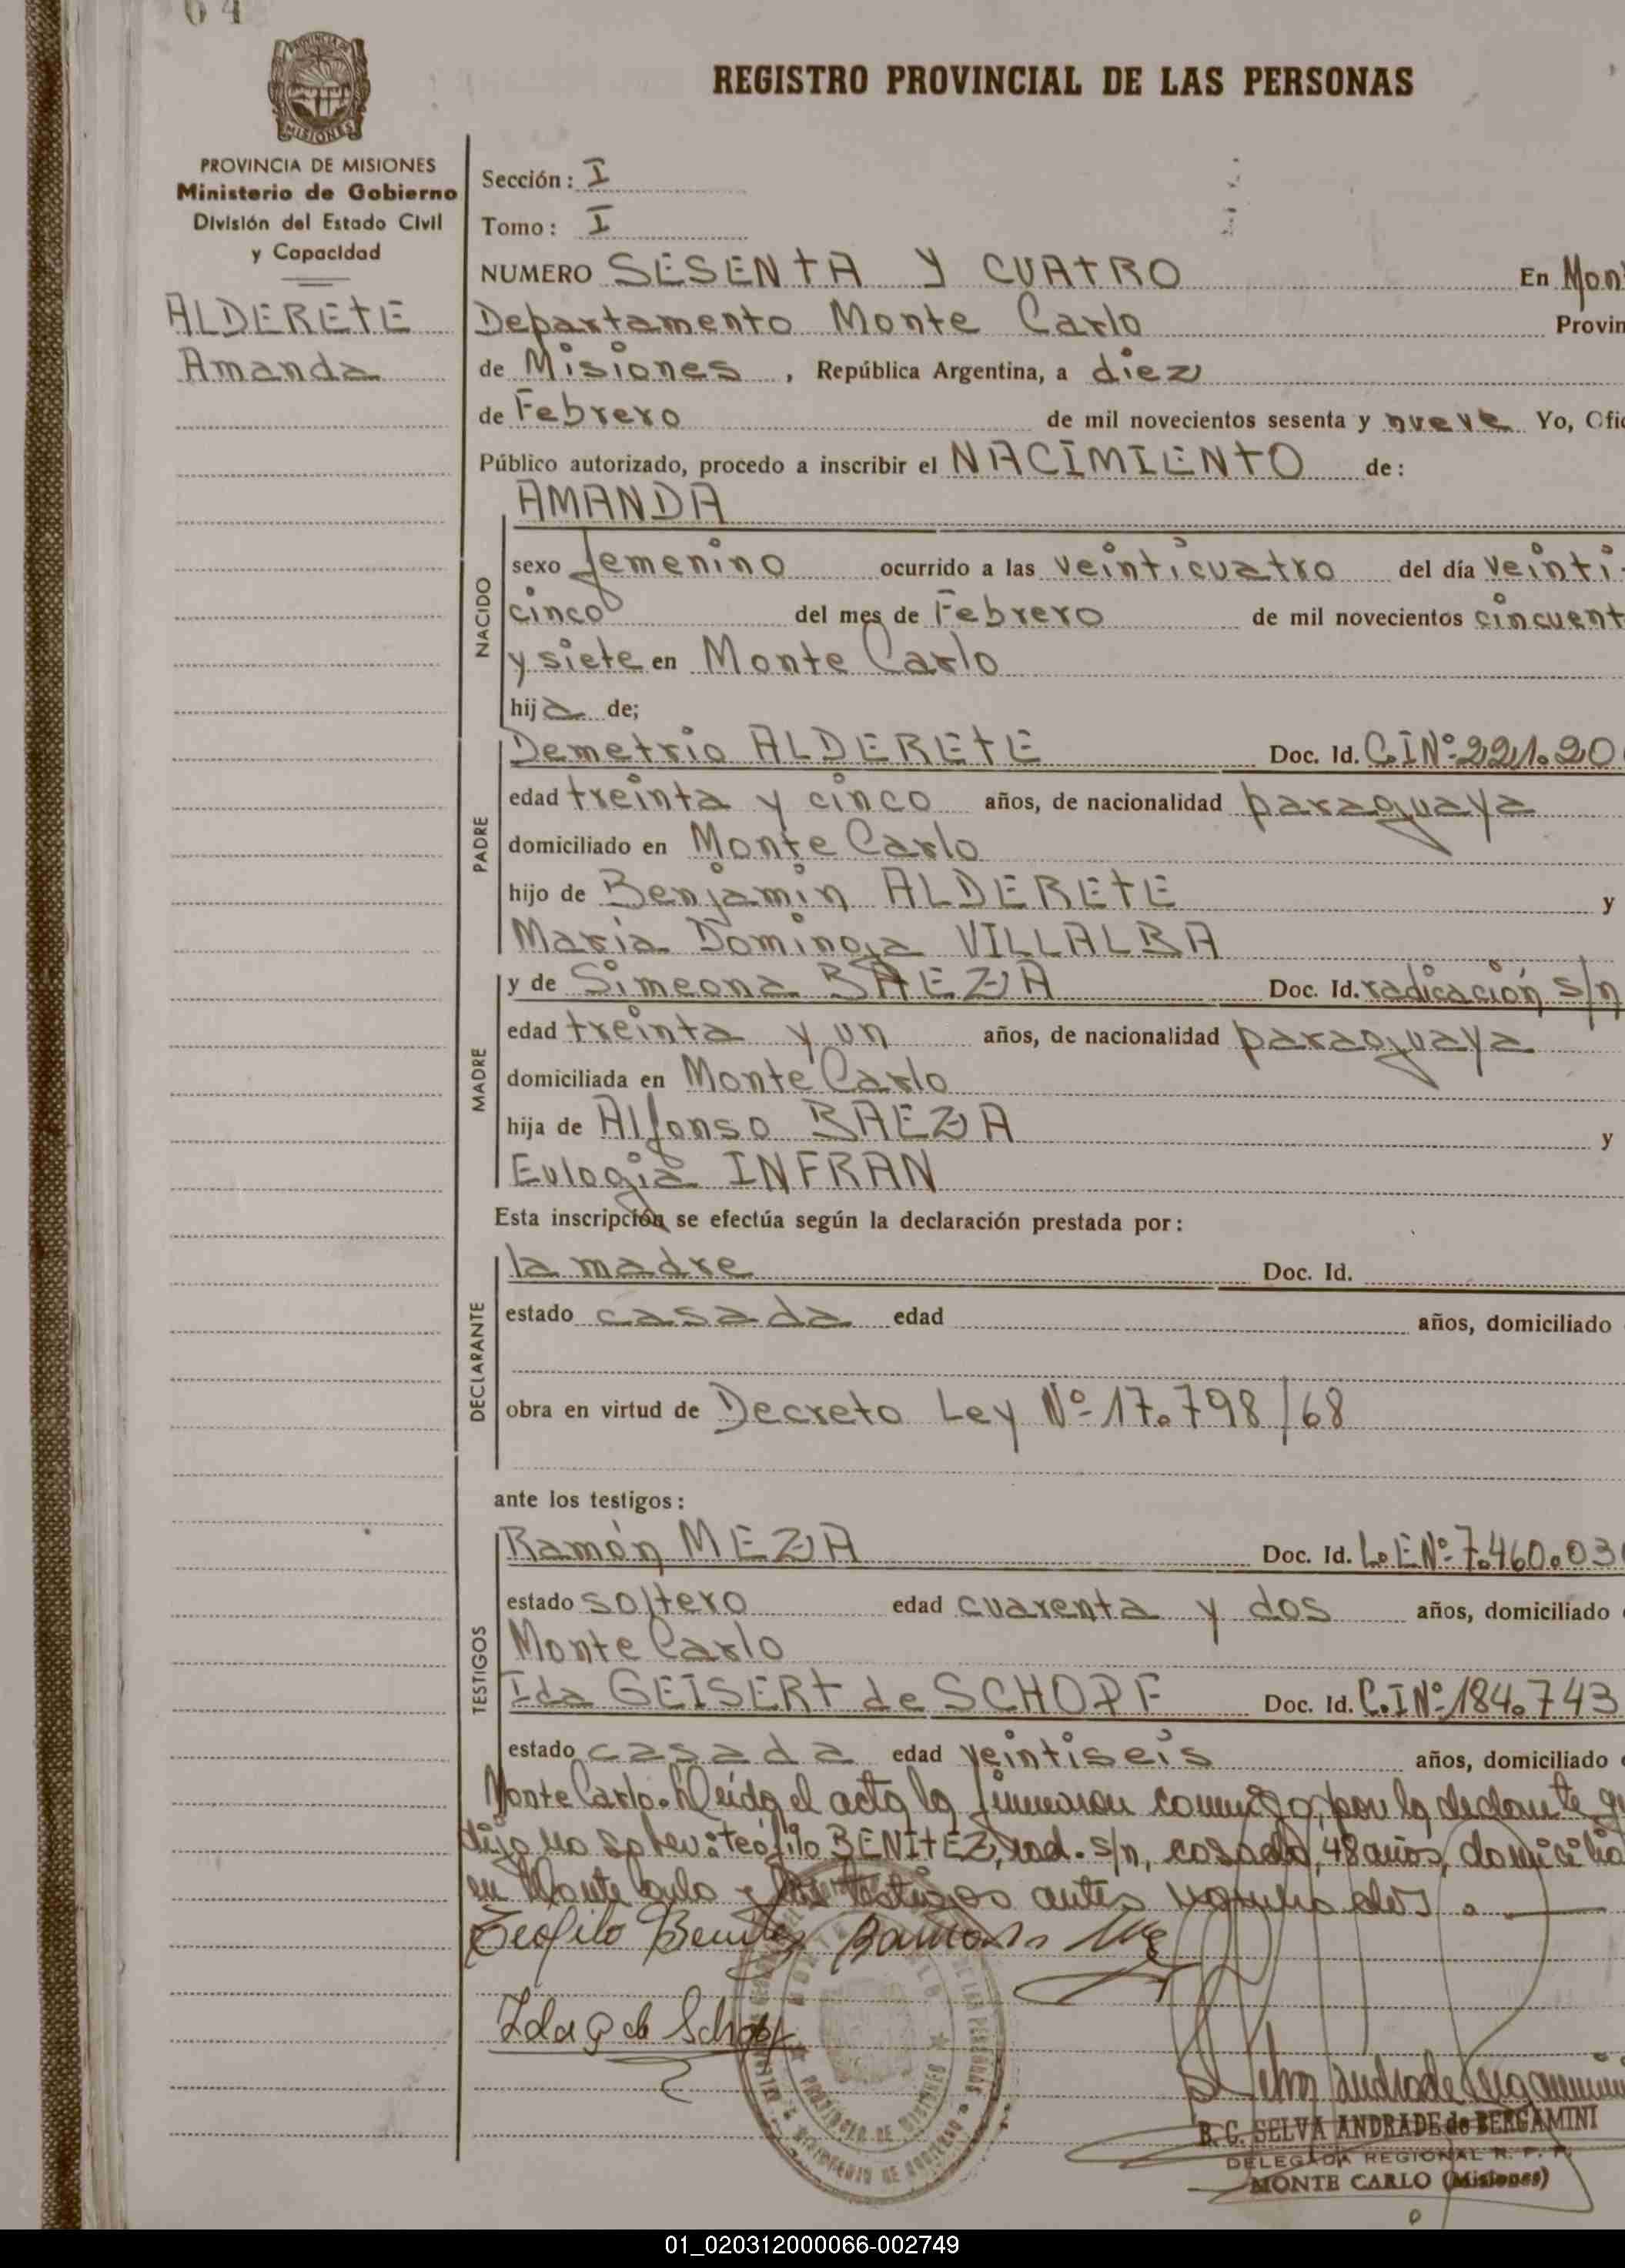 64
REGISTRO PROVINCIAL DE LAS PERSONAS
PROVINCIA DE
MISIONES
PROVINCIA DE MISIONES
Ministerio de Gobierno
División del Estado Civil
y Capacidad
ALDERETE
Amanda
Sección: I
Tomo: I
NUMERO SESENTA Y CUATRO En Mon
Departamento Monte Carlo Provin
de Misiones, República Argentina, a diez
de Febrero de mil novecientos sesenta y nueve Yo, Ofic
Público autorizado, procedo a inscribir el NACIMIENTO de:
AMANDA
NACIDO
sexo femenino ocurrido a las veinticuatro del día veinti-
cinco del mes de Febrero de mil novecientos cincuent
y siete en Monte Carlo
hija de;
PADRE
Demetrio ALDERETE Doc. Id. C.I Nº 221.20
edad treinta y cinco años, de nacionalidad paraguaya
domiciliado en Monte Carlo
hijo de Benjamin ALDERETE y
María Dominga VILLALBA
MADRE
y de Simeona BAEZA Doc. Id. radicación s/n
edad treinta y un años, de nacionalidad paraguaya
domiciliada en Monte Carlo
hija de Alfonso BAEZA y
Eulogia INFRAN
Esta inscripción se efectúa según la declaración prestada por:
DECLARANTE
la madre Doc. Id.
estado casada edad años, domiciliado
obra en virtud de Decreto Ley Nº 17.798/68
ante los testigos:
TESTIGOS
Ramón MEZA Doc. Id. L.E Nº 7.460.03
estado soltero edad cuarenta y dos años, domiciliado
Monte Carlo
Ida GEISERT de SCHOPF Doc. Id. C.I Nº 184.743
estado casada edad veintiseis años, domiciliado
Monte Carlo. Leída el acta la firmaron conmigo, por la declarante q
dijo no saber: Teófilo BENITEZ, rad. s/n, casado, 48 años, domicilia
en Monte Carlo y los testigos antes
Teofilo Benitez Ramón
Ida G de Schopf
PROVINCIA DE MISIONES
MINISTERIO DE GOBIERNO
DE LAS PERSONAS
Selva Andrade Bergamini
B. G. SELVA ANDRADE de BERGAMINI
DELEGADA REGIONAL R. P. P.
MONTE CARLO (Misiones)
01_020312000066-002749